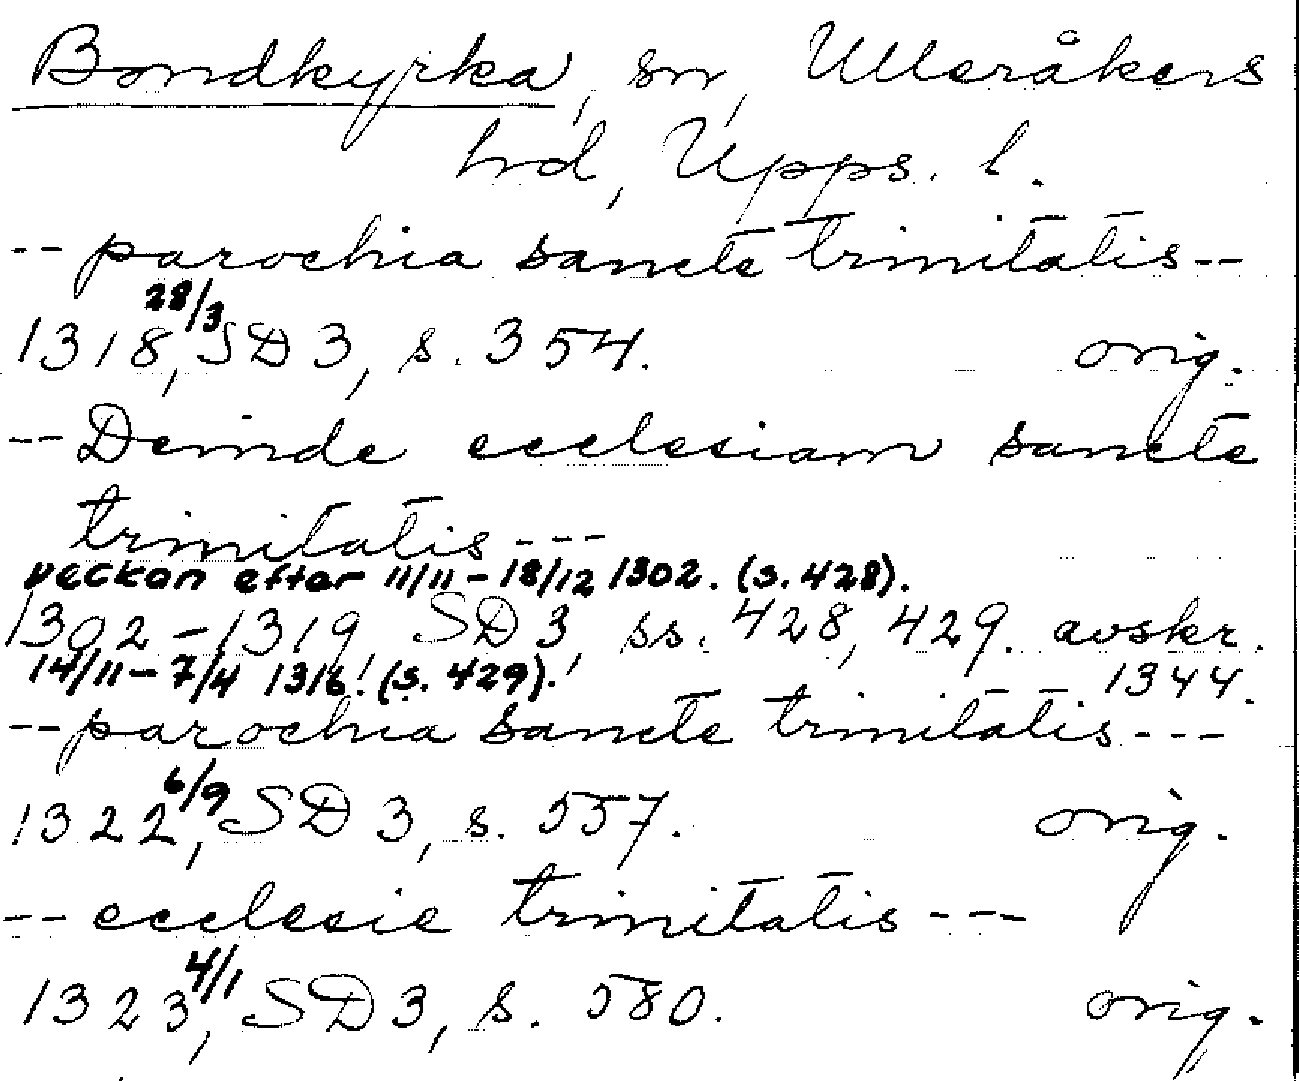 Bondkyrka, sn, Ulleråkers
hd, Upps. l.
-- parochia sancte trinitatis --
1318 28/3, SD 3, s. 354. orig.
-- Deinde ecclesiam sancte
trinitatis ---
veckan efter 11/11 - 18/12 1302. (s. 428).
1302 - 1319 SD 3, ss. 428, 429. avskr.
14/11 - 7/4 1316! (s. 429).! 1344.
-- parochia sancte trinitatis ---
1322 6/9, SD 3, s. 557. orig.
-- ecclesie trinitatis ---
1323 4/1, SD 3, s. 580. orig.